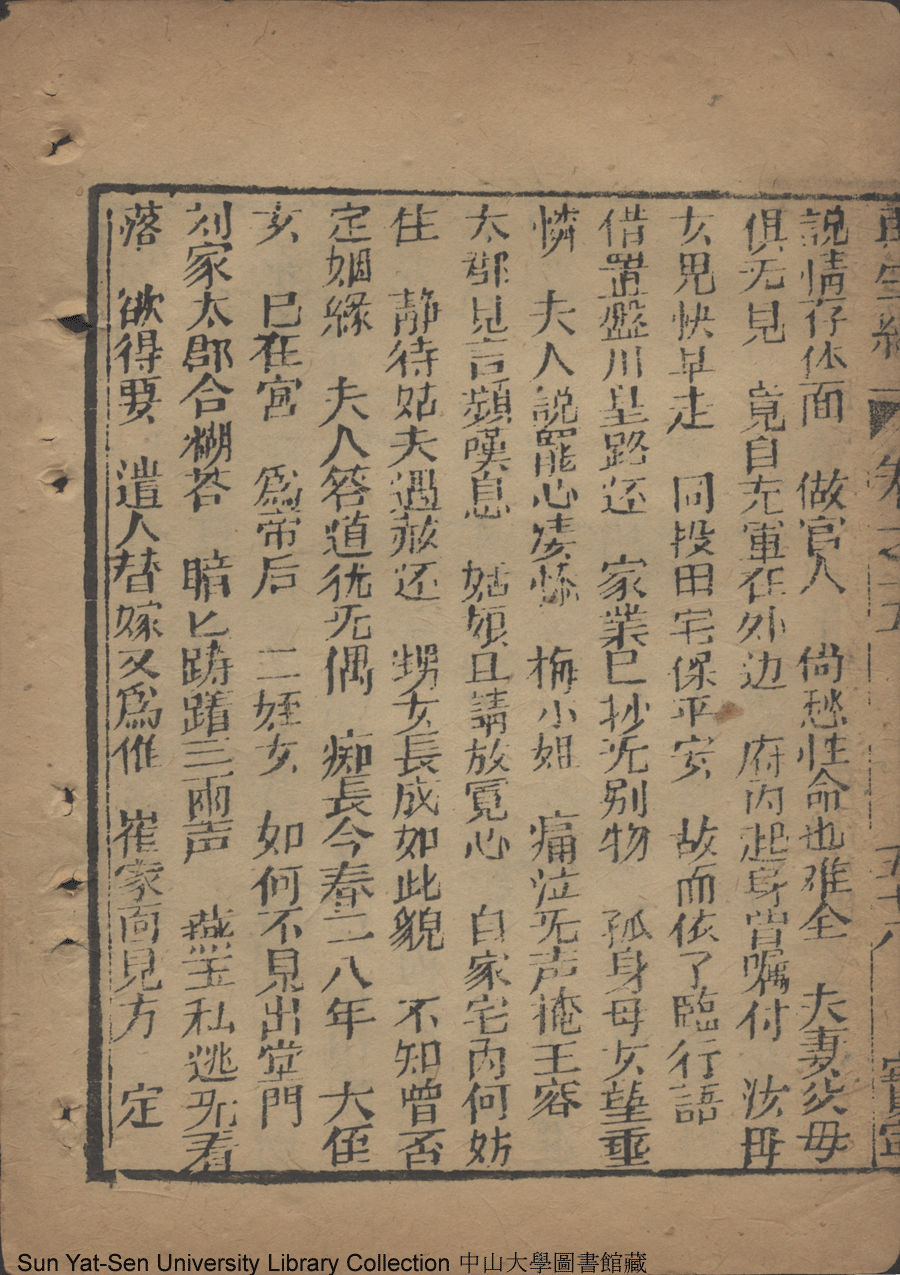 再生緣 卷之五 五十八 寶寧
說情存体面 做官人 尙愁性命也难全 夫妻父母
俱无見 竟自充軍在外边 府内起身曾嘱付 汝毋
女児快早走 同投田宅保平安 故而依了臨行語
借置盤川星路还 家業已抄旡别物 孤身母女望垂
憐 夫人說罷心凄慘 梅小姐 痛泣旡声掩玉容
太郡見言頻嘆息 姑娘且請放寬心 自家宅内何妨
住 静待姑夫遇赦还 甥女長成如此貌 不知曾否
定姻緣 夫人答道犹旡偶 痴長今春二八年 大侄
女 已在宮 爲帝后 二姪女 如何不見出堂門
刘家太郡含糊荅 暗匕踌躇三兩声 燕玉私逃旡看
落 欲得要 遣人替嫁又爲催 崔家面見方 定
Sun Yat-Sen University Library Collection 中山大學圖書館藏